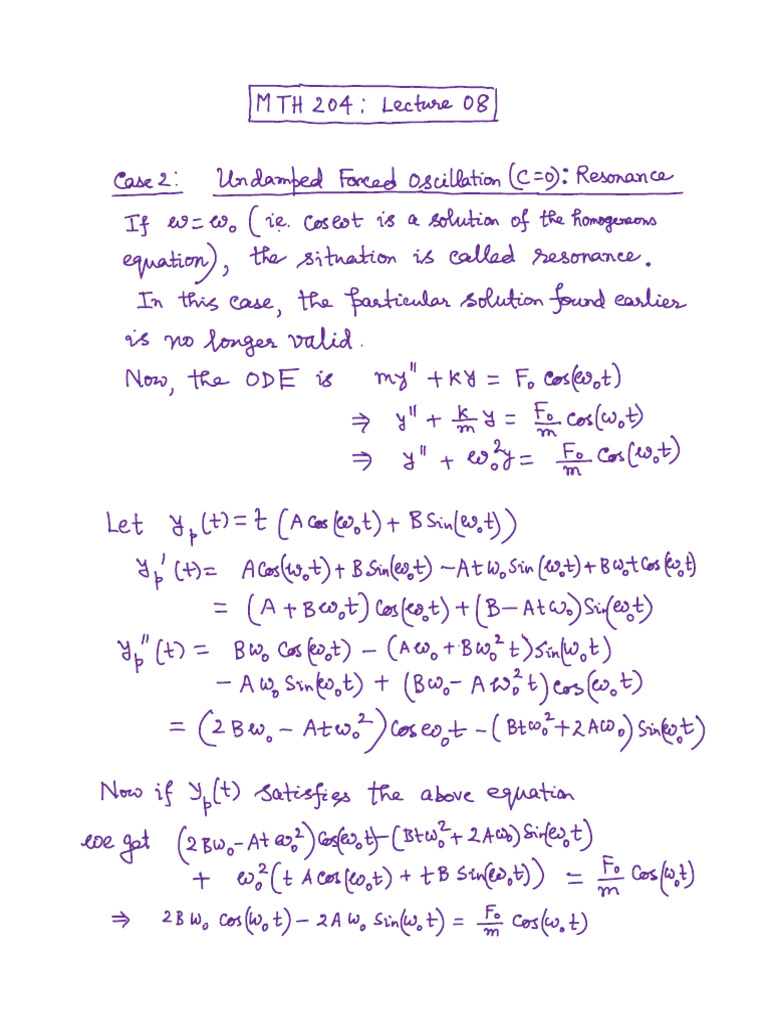 MTH 204: Lecture 08
Case 2: Undamped Forced Oscillation (C=0): Resonance
If ω=ω₀ (i.e. Cosωt is a solution of the homogeneous
equation), the situation is called resonance.
In this case, the particular solution found earlier
is no longer valid.
Now, the ODE is my'' + ky = F₀ Cos(ω₀t)
⇒ y'' + k/m y = F₀/m Cos(ω₀t)
⇒ y'' + ω₀²y = F₀/m Cos(ω₀t)
Let yₚ(t) = t (A Cos(ω₀t) + B Sin(ω₀t))
yₚ'(t) = A Cos(ω₀t) + B Sin(ω₀t) - A t ω₀ Sin(ω₀t) + B ω₀ t Cos(ω₀t)
= (A + Bω₀t) Cos(ω₀t) + (B - Atω₀) Sin(ω₀t)
yₚ''(t) = Bω₀ Cos(ω₀t) - (Aω₀ + Bω₀² t) Sin(ω₀t)
- Aω₀ Sin(ω₀t) + (Bω₀ - Aω₀² t) Cos(ω₀t)
= (2Bω₀ - Atω₀²) Cosω₀t - (Btω₀² + 2Aω₀) Sin(ω₀t)
Now if yₚ(t) satisfies the above equation
we get (2Bω₀ - Atω₀²) Cos(ω₀t) - (Btω₀² + 2Aω₀) Sin(ω₀t)
+ ω₀² (t A Cos(ω₀t) + t B Sin(ω₀t)) = F₀/m Cos(ω₀t)
⇒ 2Bω₀ Cos(ω₀t) - 2Aω₀ Sin(ω₀t) = F₀/m Cos(ω₀t)